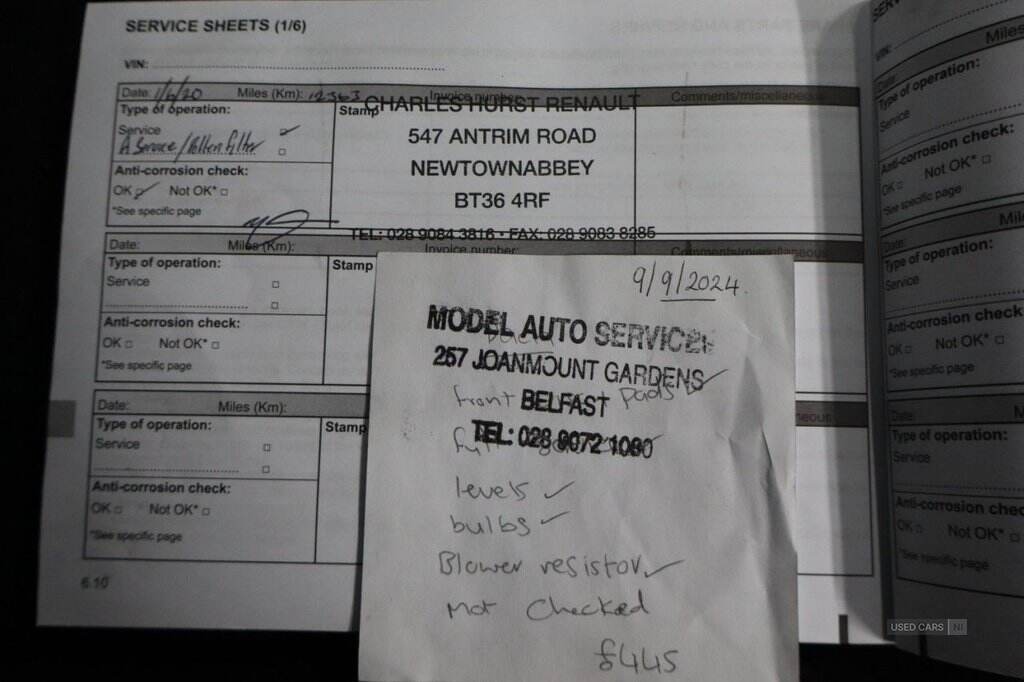 SERVICE SHEETS (1/6)
VIN:
Date: 1/6/20 Miles (Km): 12363 Invoice number: Comments/miscellaneous
Type of operation:
Stamp
Service
A Service/Pollen filter
Anti-corrosion check:
OK Not OK*
*See specific page
CHARLES HURST RENAULT
547 ANTRIM ROAD
NEWTOWNABBEY
BT36 4RF
TEL: 028 9084 3816 · FAX: 028 9083 8285
Date: Miles (Km): Invoice number: Comments/miscellaneous
Type of operation: Stamp
Service
Anti-corrosion check:
OK Not OK*
*See specific page
Date: Miles (Km):
Type of operation: Stamp
Service
Anti-corrosion check:
OK Not OK*
*See specific page
6.10
9/9/2024
MODEL AUTO SERVICES
257 JOANMOUNT GARDENS
front pads
BELFAST
TEL: 028 9072 1080
full
levels
bulbs
Blower resistor
Mot Checked
£445
VIN:
Date: Miles
Type of operation:
Service
Anti-corrosion check:
OK Not OK*
*See specific page
Date: Mil
Type of operation:
Service
Anti-corrosion check:
OK Not OK*
*See specific page
Date: M
Type of operation:
Service
Anti-corrosion chec
OK Not OK*
*See specific page
USED CARS NI